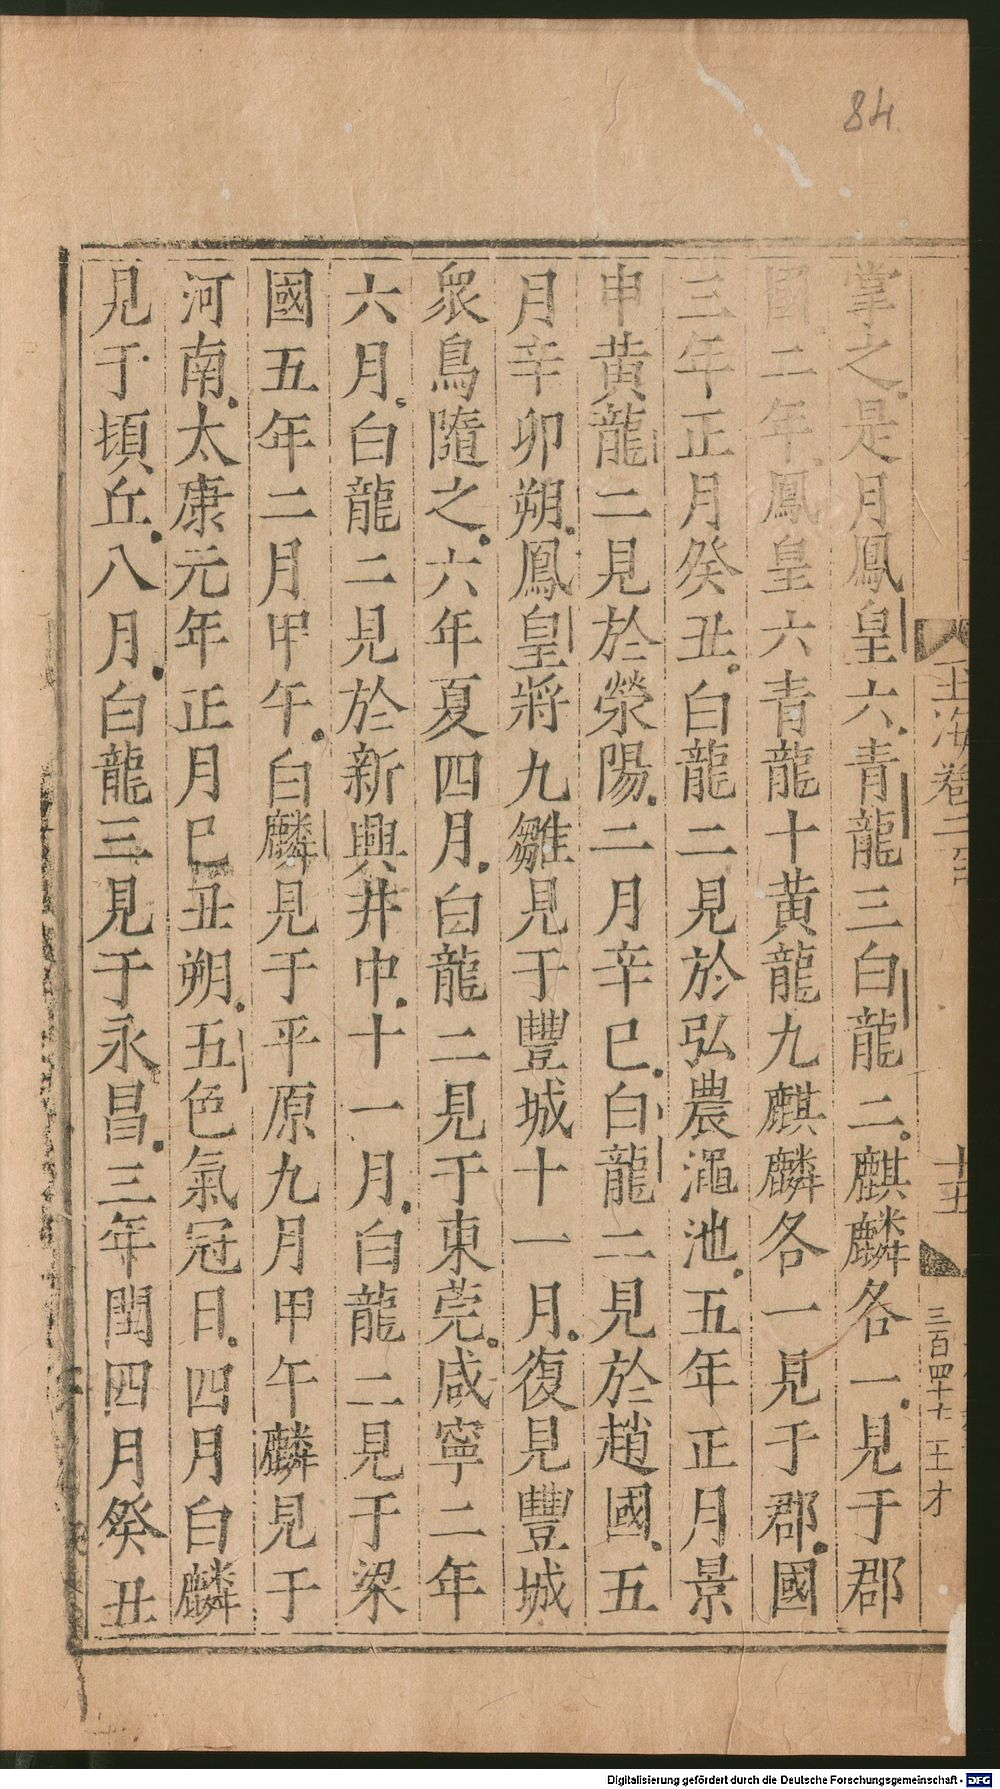 84
掌之是月鳳皇六青龍三白龍二麒麟各一見于郡
國二年鳳皇六青龍十黃龍九麒麟各一見于郡國
三年正月癸丑白龍二見於弘農澠池五年正月景
申黃龍二見於滎陽二月辛巳白龍二見於趙國五
月辛卯朔鳳皇將九雛見于豐城十一月復見豐城
衆鳥隨之六年夏四月白龍二見于東莞咸寧二年
六月白龍二見於新興井中十一月白龍二見于梁
國五年二月甲午白麟見于平原九月甲午麟見于
河南太康元年正月己丑朔五色氣冠日四月白麟
見于頃丘八月白龍三見于永昌三年閏四月癸丑
玉海卷二百
十五
三百四十七
王才
Digitalisierung gefördert durch die Deutsche Forschungsgemeinschaft - DFG